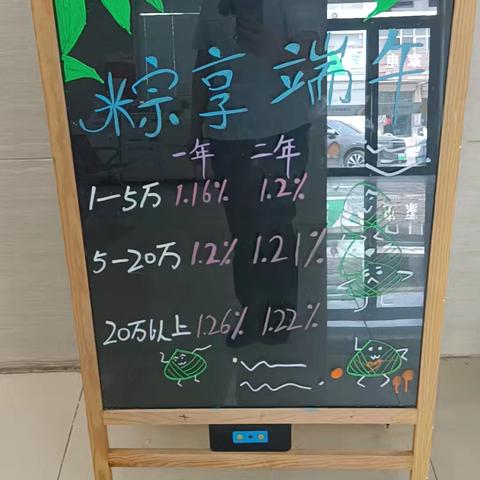 粽享端午
一年 二年
1-5万 1.16% 1.2%
5-20万 1.2% 1.21%
20万以上 1.26% 1.22%